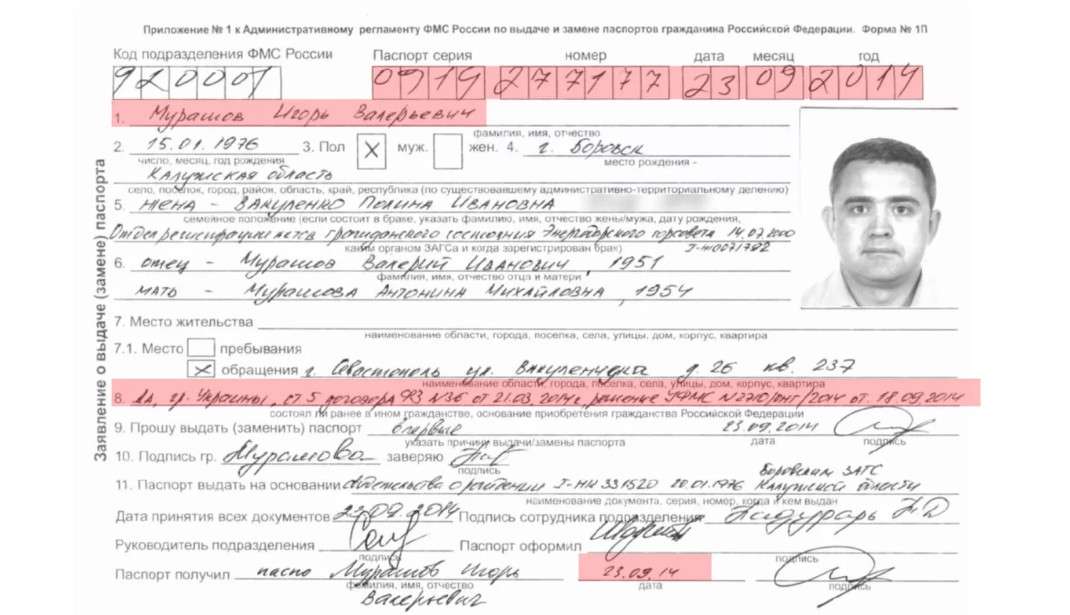 Приложение № 1 к Административному регламенту ФМС России по выдаче и замене паспортов гражданина Российской Федерации. Форма № 1П
Код подразделения ФМС России Паспорт серия номер дата месяц год
920001 0919 277177 23 09 2014
1. Мурашов Игорь Валерьевич
фамилия, имя, отчество
2. 15.01.1976 3. Пол X муж. жен. 4. г. Боровск
число, месяц, год рождения место рождения -
Калужская область
село, поселок, город, район, область, край, республика (по существовавшему административно-территориальному делению)
5. жена - Вакуленко Полина Ивановна
семейное положение (если состоит в браке, указать фамилию, имя, отчество жены/мужа, дату рождения,
Отдел регистрации актов гражданского состояния Энергодарского горсовета 14.07.2000
каким органом ЗАГСа и когда зарегистрирован брак)
6. отец - Мурашов Валерий Иванович, 1951
фамилия, имя, отчество отца и матери
мать - Мурашова Антонина Михайловна, 1954
7. Место жительства
наименование области, города, поселка, села, улицы, дом, корпус, квартира
7.1. Место пребывания
X обращения г. Севастополь ул. Вакуленчука д. 26 кв. 237
наименование области, города, поселка, села, улицы, дом, корпус, квартира
8. Да, гр. Украины, ст 5 договора ФЗ N36 от 21.03.2014г, решение УФМС от 18.09.2014
состоял ли ранее в ином гражданстве, основание приобретения гражданства Российской Федерации
9. Прошу выдать (заменить) паспорт впервые 23.09.2014
указать причину выдачи/замены паспорта дата подпись
10. Подпись гр. Мурашова заверяю
подпись
11. Паспорт выдать на основании свидетельства о рождении I-НН 331520 20.01.1976 Боровским ЗАГС Калужской области
наименование документа, серия, номер, когда и кем выдан
Дата принятия всех документов 22.09.2014 Подпись сотрудника подразделения
Руководитель подразделения Паспорт оформил
подпись подпись
Паспорт получил Мурашов Игорь 23.09.14
фамилия, имя, отчество дата подпись
Валерьевич
Заявление о выдаче (замене) паспорта